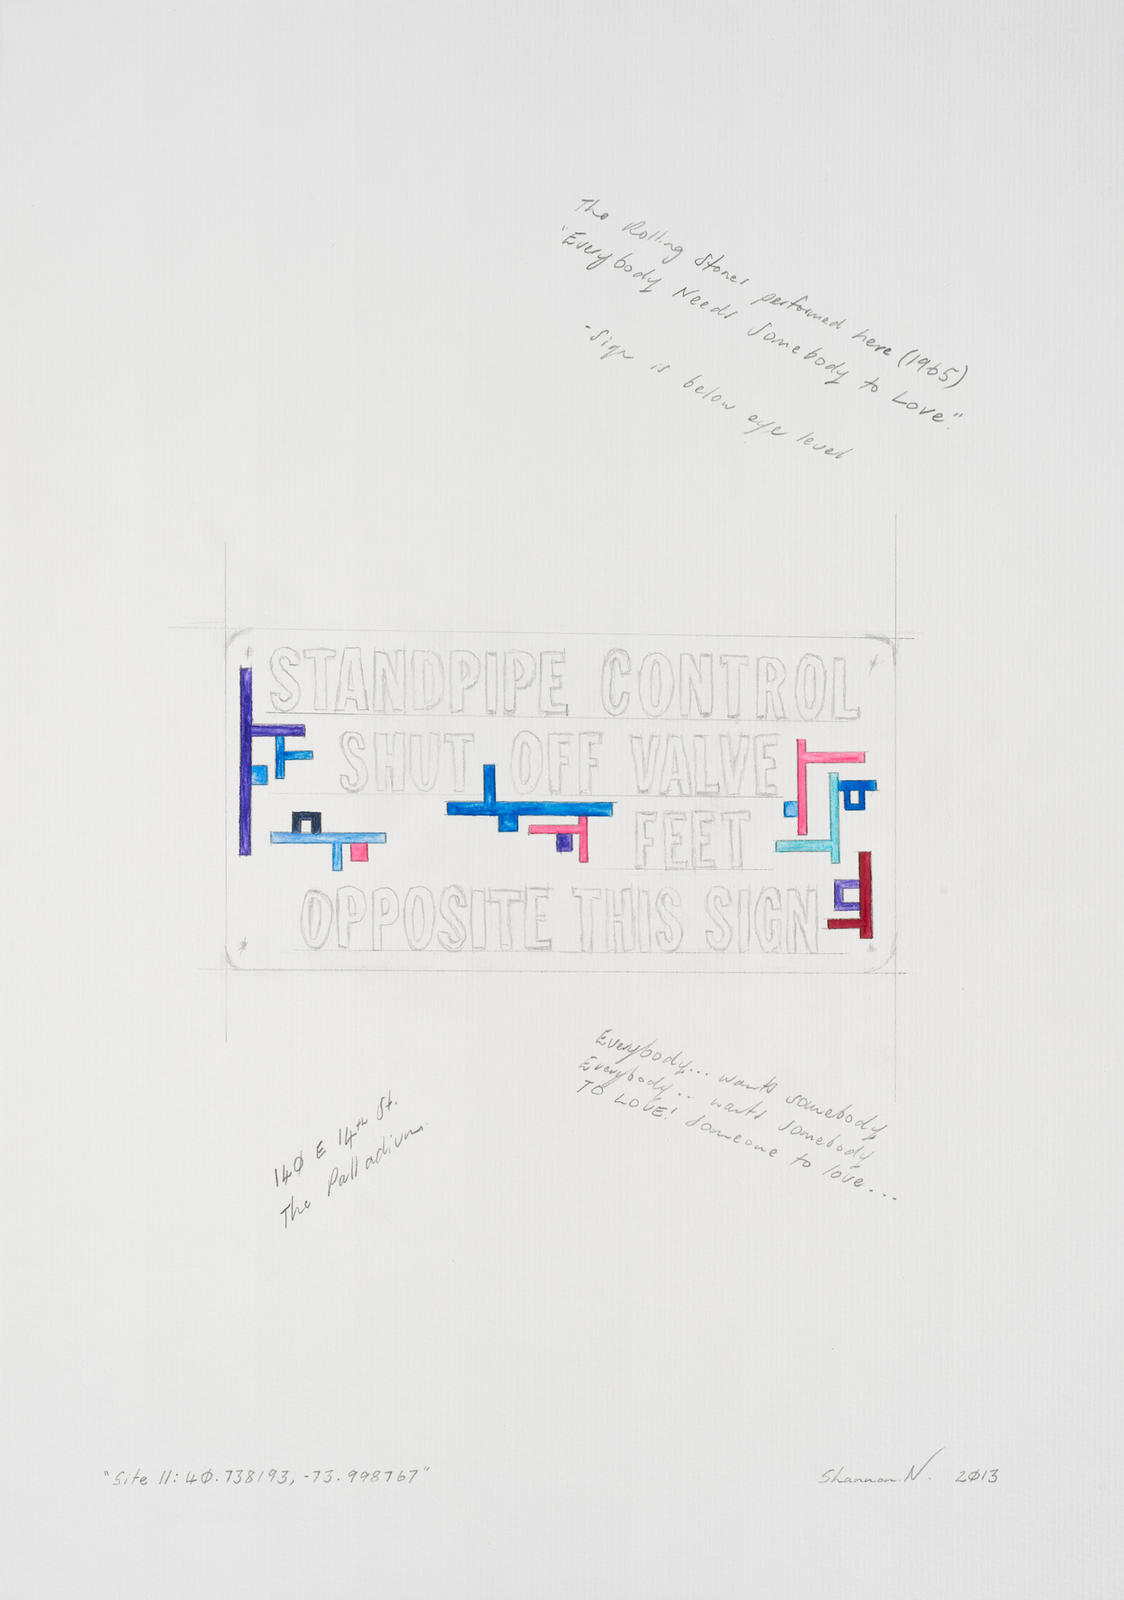 The Rolling Stones performed here (1965)
"Everybody Needs Somebody to Love".
-Sign is below eye level
STANDPIPE CONTROL
SHUT OFF VALVE
FEET
OPPOSITE THIS SIGN
Everybody... wants somebody
Everybody... wants somebody
TO LOVE! Someone to love...
140 E 14th St.
The Palladium.
"Site 11: 40.738193, -73.998767"
Shannon N. 2013